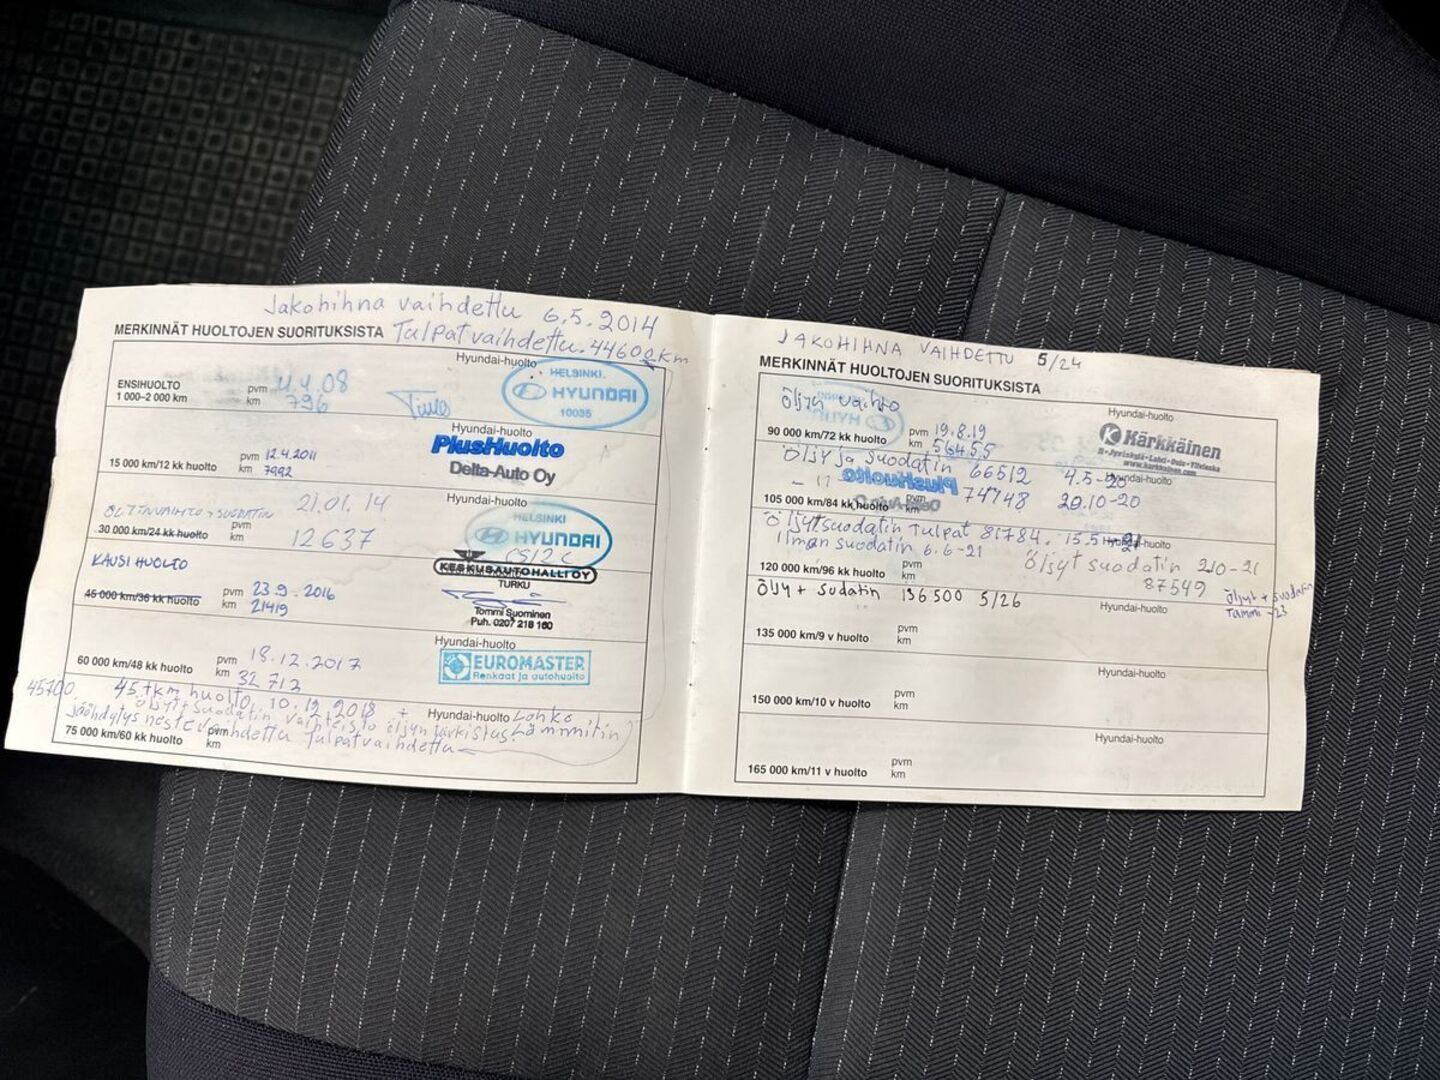 Jakohihna vaihdettu 6.5.2014
MERKINNÄT HUOLTOJEN SUORITUKSISTA Tulpat vaihdettu. 44600km
Hyundai-huolto
ENSIHUOLTO
1 000–2 000 km
pvm 4.4.08
km 796
HELSINKI.
HYUNDAI
10035
Hyundai-huolto
PlusHuolto
Delta-Auto Oy
15 000 km/12 kk huolto
pvm 12.4.2011
km 7992
Hyundai-huolto
ÖLJYNVAIHTO + SUODATIN 21.01.14
30 000 km/24 kk huolto
pvm
km 12637
HELSINKI
HYUNDAI
KESKUSAUTOHALLI OY
TURKU
Tommi Suominen
Puh. 0207 218 160
KAUSI HUOLTO
45 000 km/36 kk huolto
pvm 23.9.2016
km 21419
Hyundai-huolto
EUROMASTER
Renkaat ja autohuolto
60 000 km/48 kk huolto
pvm 18.12.2017
km 32 713
45700 45 tkm huolto, 10.12 2018 +
Hyundai-huolto Lohko
öljyt + suodatin vaihteisto öljyn tarkistus. Lämmitin
jäähdytys neste vaihdettu Tulpat vaihdettu
75 000 km/60 kk huolto
pvm
km
JAKOHIHNA VAIHDETTU 5/24
MERKINNÄT HUOLTOJEN SUORITUKSISTA
Hyundai-huolto
Öljyn vaihto
90 000 km/72 kk huolto
pvm 19.8.19
km 56455
Kärkkäinen
www.karkkainen.com
Öljy ja suodatin 66512 4.5-20
Hyundai-huolto
– 11 – 74748 29.10-20
105 000 km/84 kk huolto
pvm
km
Öljyt suodatin Tulpat 81784. 15.5-21
Hyundai-huolto
ilman suodatin 6.6-21
Öljyt suodatin 2.10-21
87549
120 000 km/96 kk huolto
pvm
km
Öljyt + suodatin
Tammi -23
Öljy + sudatin 136500 5/26
Hyundai-huolto
135 000 km/9 v huolto
pvm
km
Hyundai-huolto
150 000 km/10 v huolto
pvm
km
Hyundai-huolto
165 000 km/11 v huolto
pvm
km